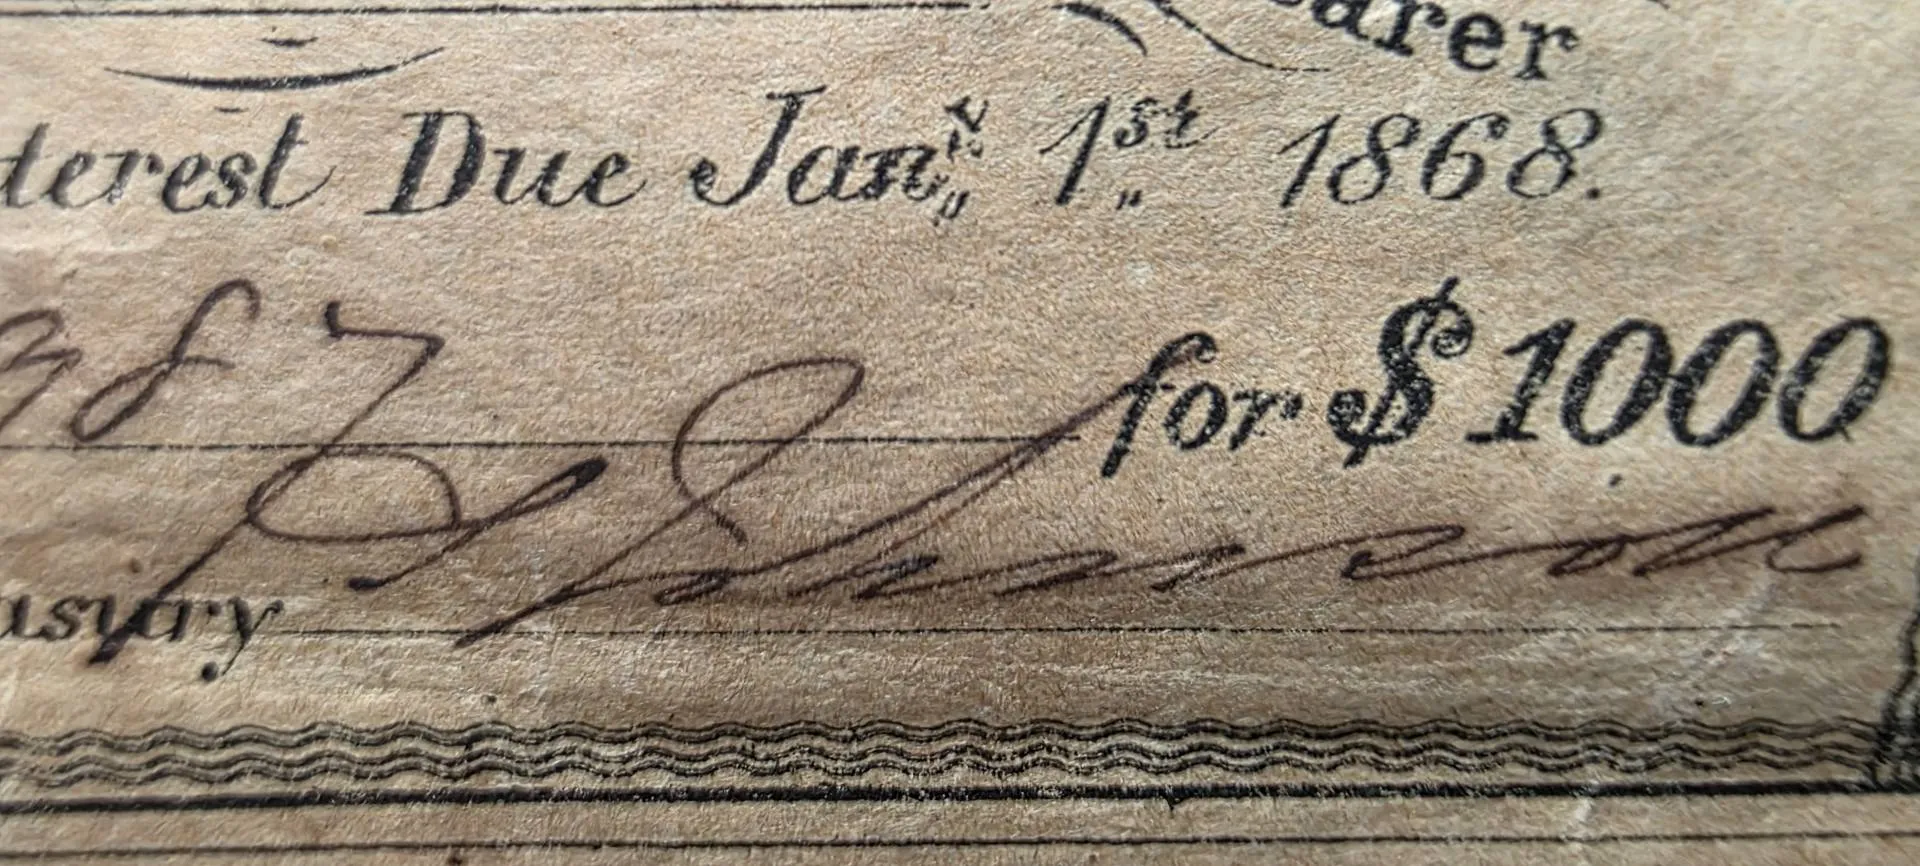 arer
terest Due Jan.ry 1st 1868.
987 for $1000
asury